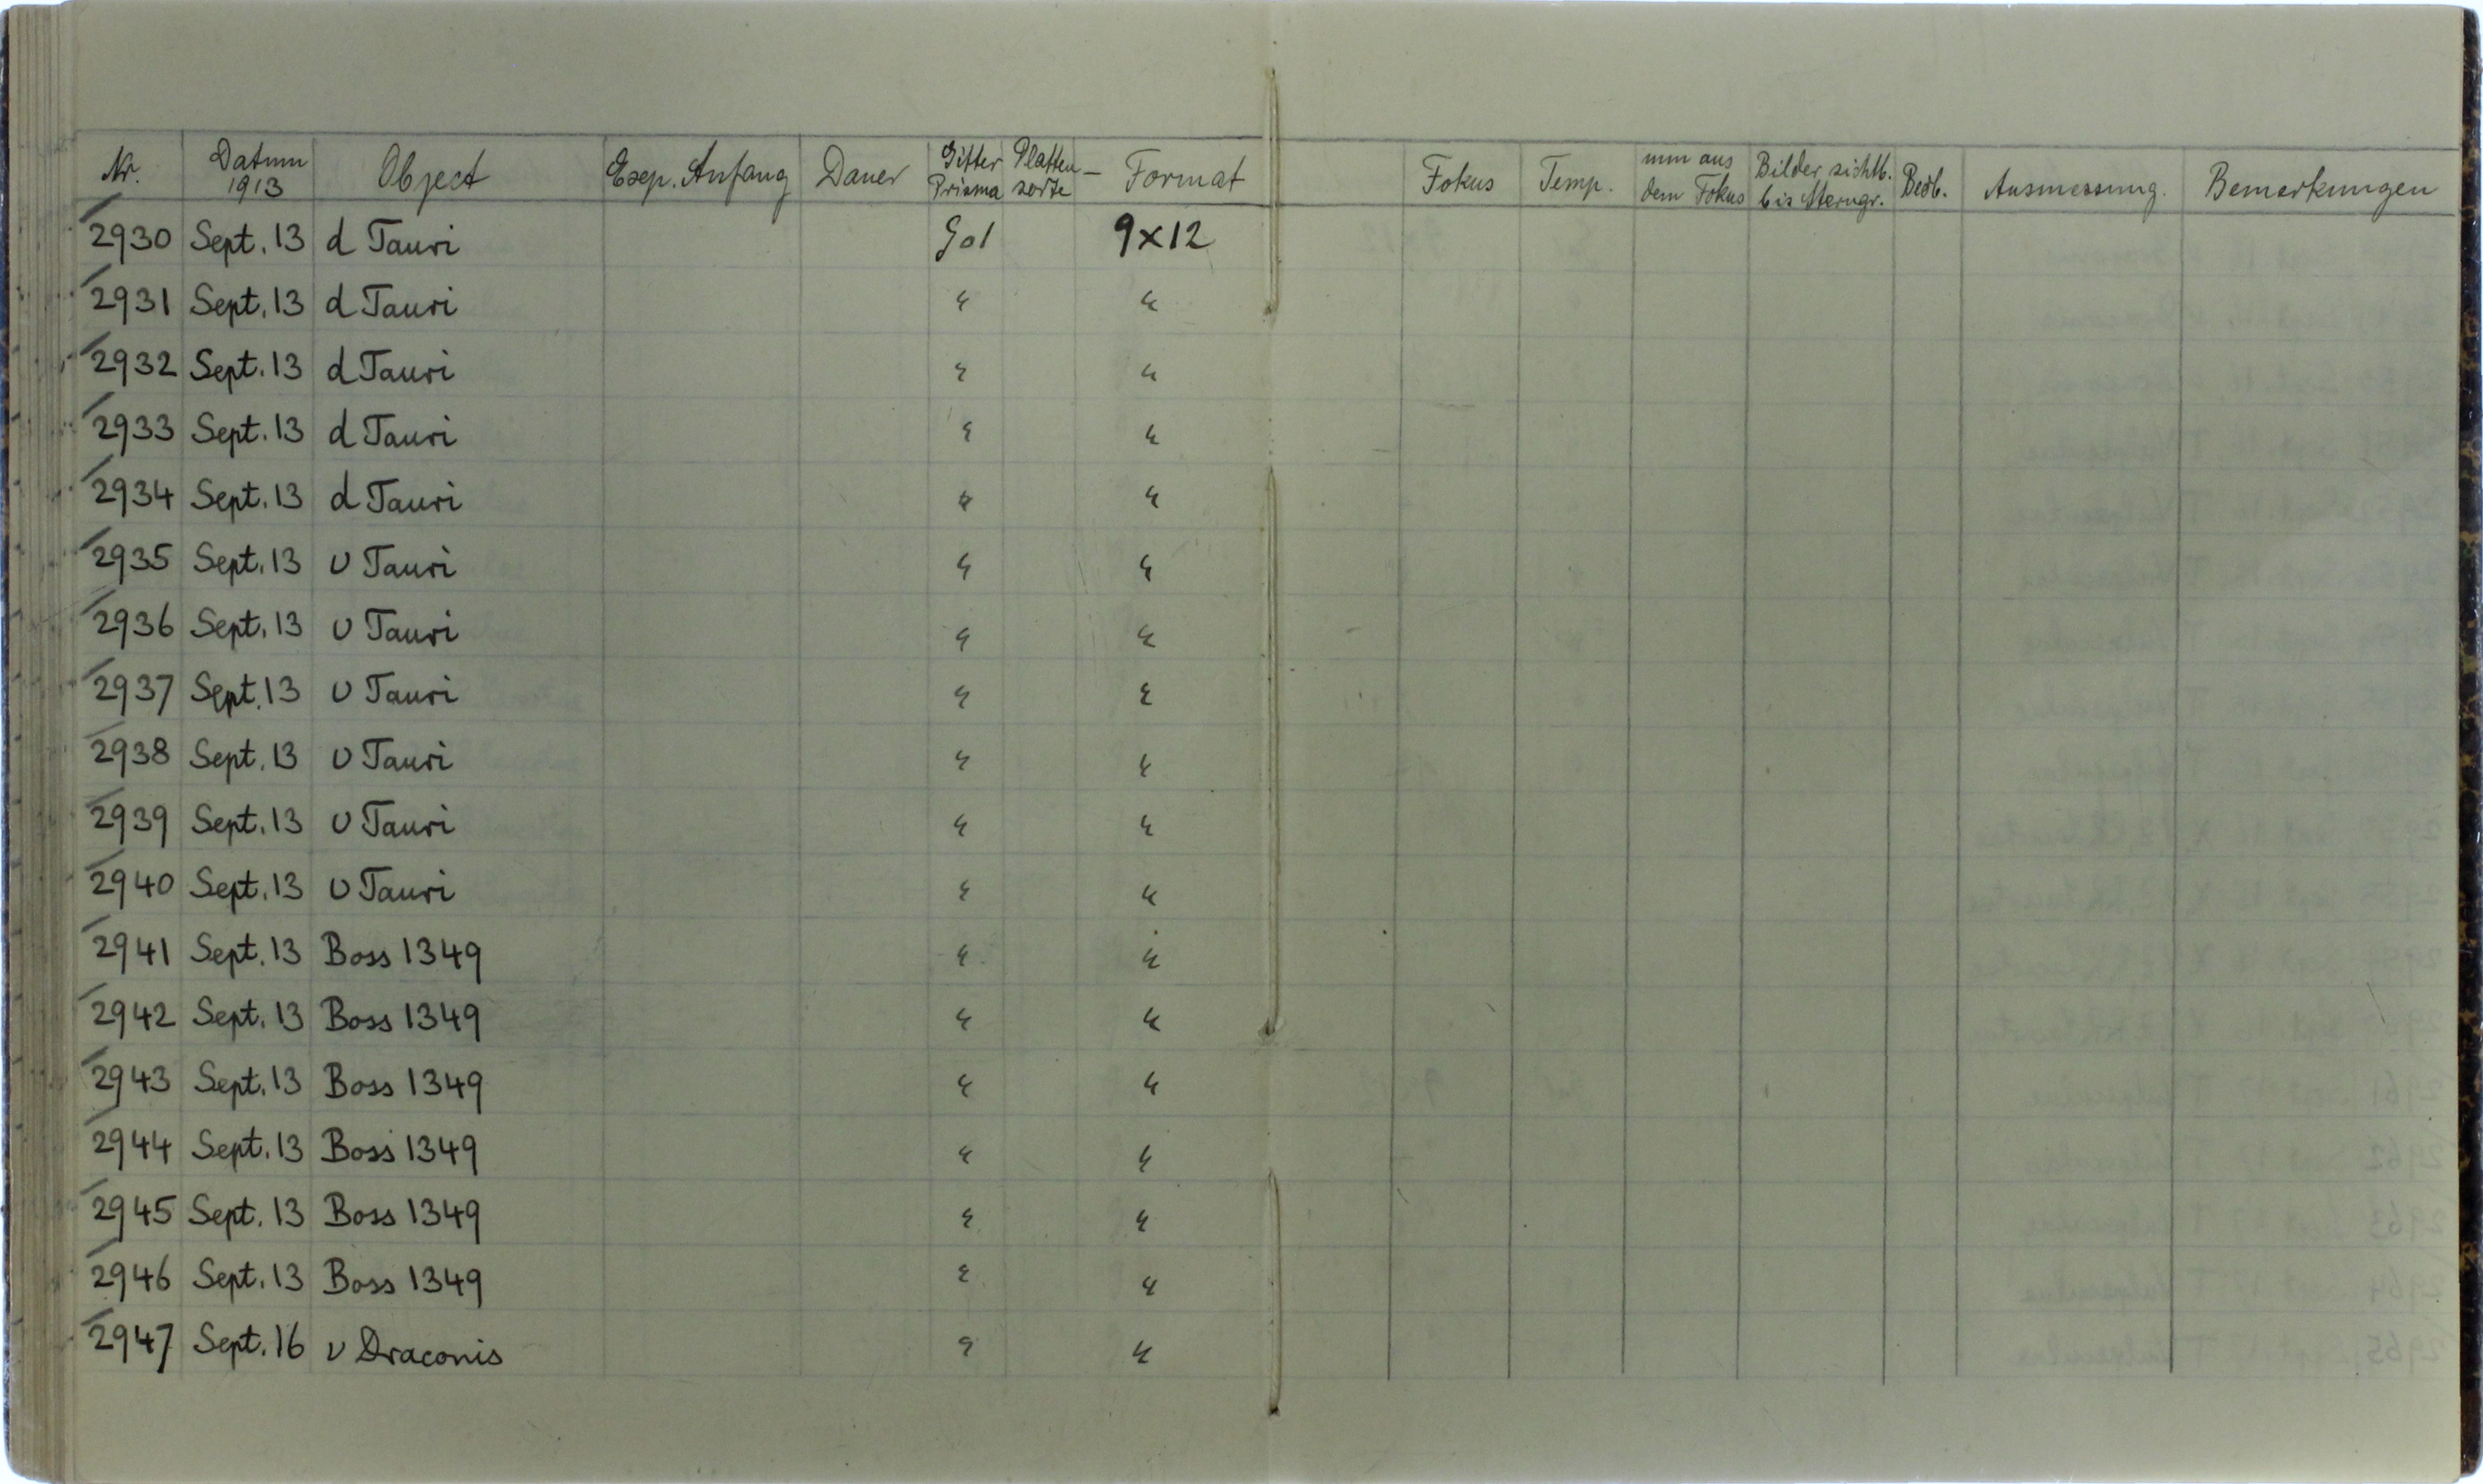 Nr. Datum 1913 Object Exp. Anfang Dauer Gitter Prisma Platten-sorte Format Fokus Temp. mm aus dem Fokus Bilder sichtb. bis Sterngr. Beob. Ausmessung. Bemerkungen
2930 Sept. 13 d Tauri 9x12
2931 Sept. 13 d Tauri " "
2932 Sept. 13 d Tauri " "
2933 Sept. 13 d Tauri " "
2934 Sept. 13 d Tauri " "
2935 Sept. 13 υ Tauri " "
2936 Sept. 13 υ Tauri " "
2937 Sept. 13 υ Tauri " "
2938 Sept. 13 υ Tauri " "
2939 Sept. 13 υ Tauri " "
2940 Sept. 13 υ Tauri " "
2941 Sept. 13 Boss 1349 " "
2942 Sept. 13 Boss 1349 " "
2943 Sept. 13 Boss 1349 " "
2944 Sept. 13 Boss 1349 " "
2945 Sept. 13 Boss 1349 " "
2946 Sept. 13 Boss 1349 " "
2947 Sept. 16 ν Draconis " "